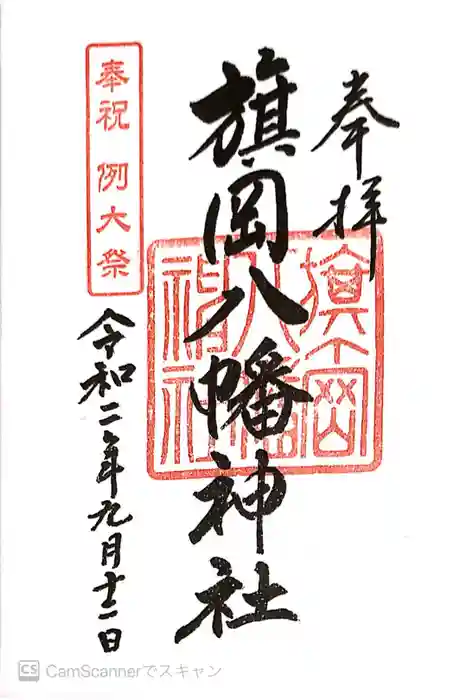 奉拝
旗岡八幡神社
奉祝 例大祭
令和二年九月十二日
CS CamScannerでスキャン